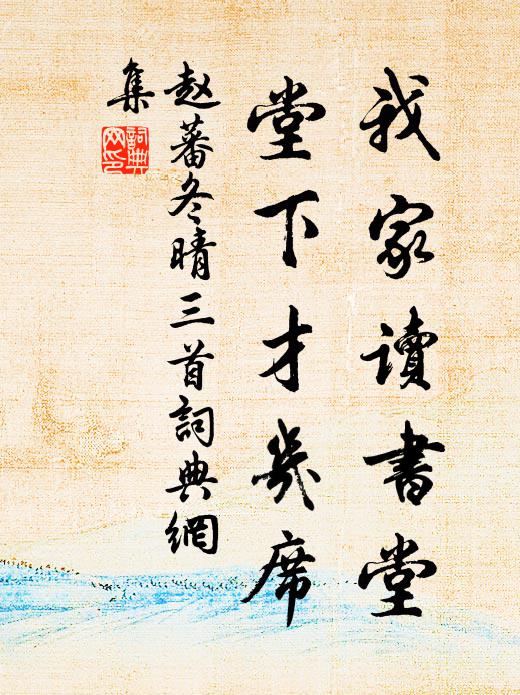 我家讀書堂
堂下才幾席
赵蕃冬晴三首詞典網
集
詞典
网印